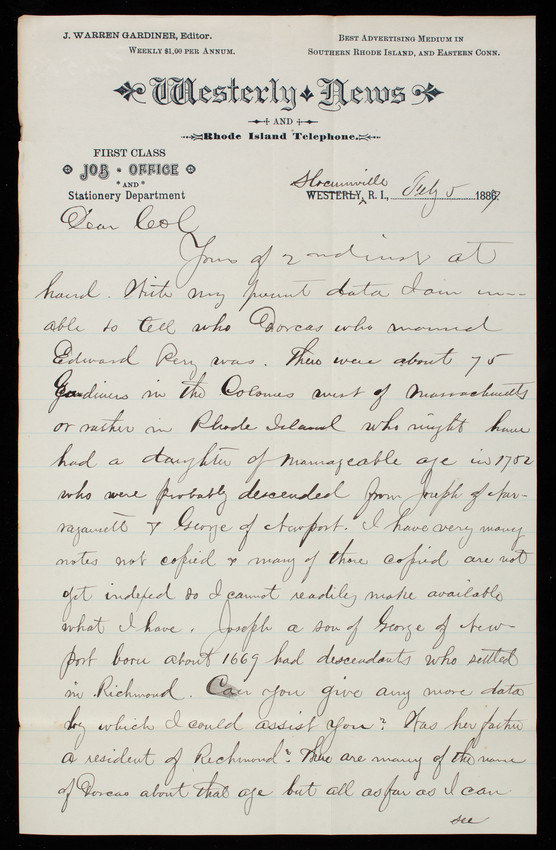 J. WARREN GARDINER, Editor.
WEEKLY $1.00 PER ANNUM.
BEST ADVERTISING MEDIUM IN
SOUTHERN RHODE ISLAND, AND EASTERN CONN.
Westerly News
AND
Rhode Island Telephone.
FIRST CLASS
JOB OFFICE
AND
Stationery Department
Slocumville
WESTERLY, R. I., Feby 5 1887.
Dear Col
Yours of 2nd inst at
hand. With my present data I am un-
able to tell who Dorcas who married
Edward Perry was. There were about 75
Gardiners in the Colonies west of Massachusetts
or rather in Rhode Island who might have
had a daughter of marriageable age in 1752
who were probably descended from Joseph of Nar-
ragansett & George of Newport. I have very many
notes not copied & many of those copied are not
yet indexed so I cannot readily make available
what I have. Joseph a son of George of New-
port born about 1669 had descendants who settled
in Richmond. Can you give any more data
by which I could assist you? Was her father
a resident of Richmond? There are many of the name
of Dorcas about that age but all as far as I can
see